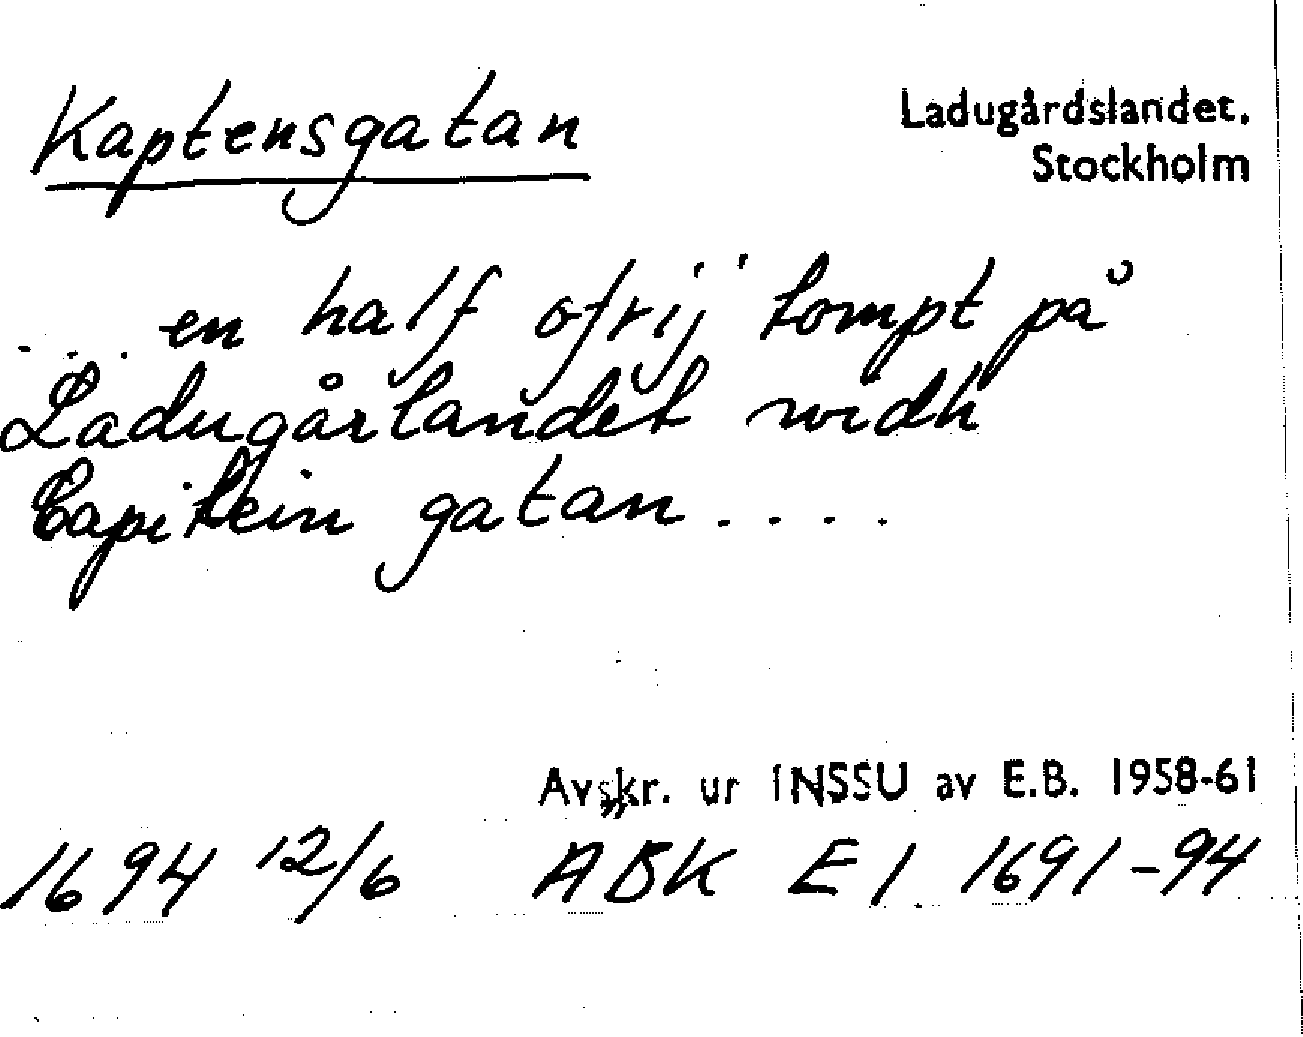 Kaptensgatan
Ladugårdslandet.
Stockholm
... en half ofrij tompt på
Ladugårlandet widh
Capitein gatan ....
Avskr. ur INSSU av E.B. 1958-61
1694 12/6 ABK E1 1691-94